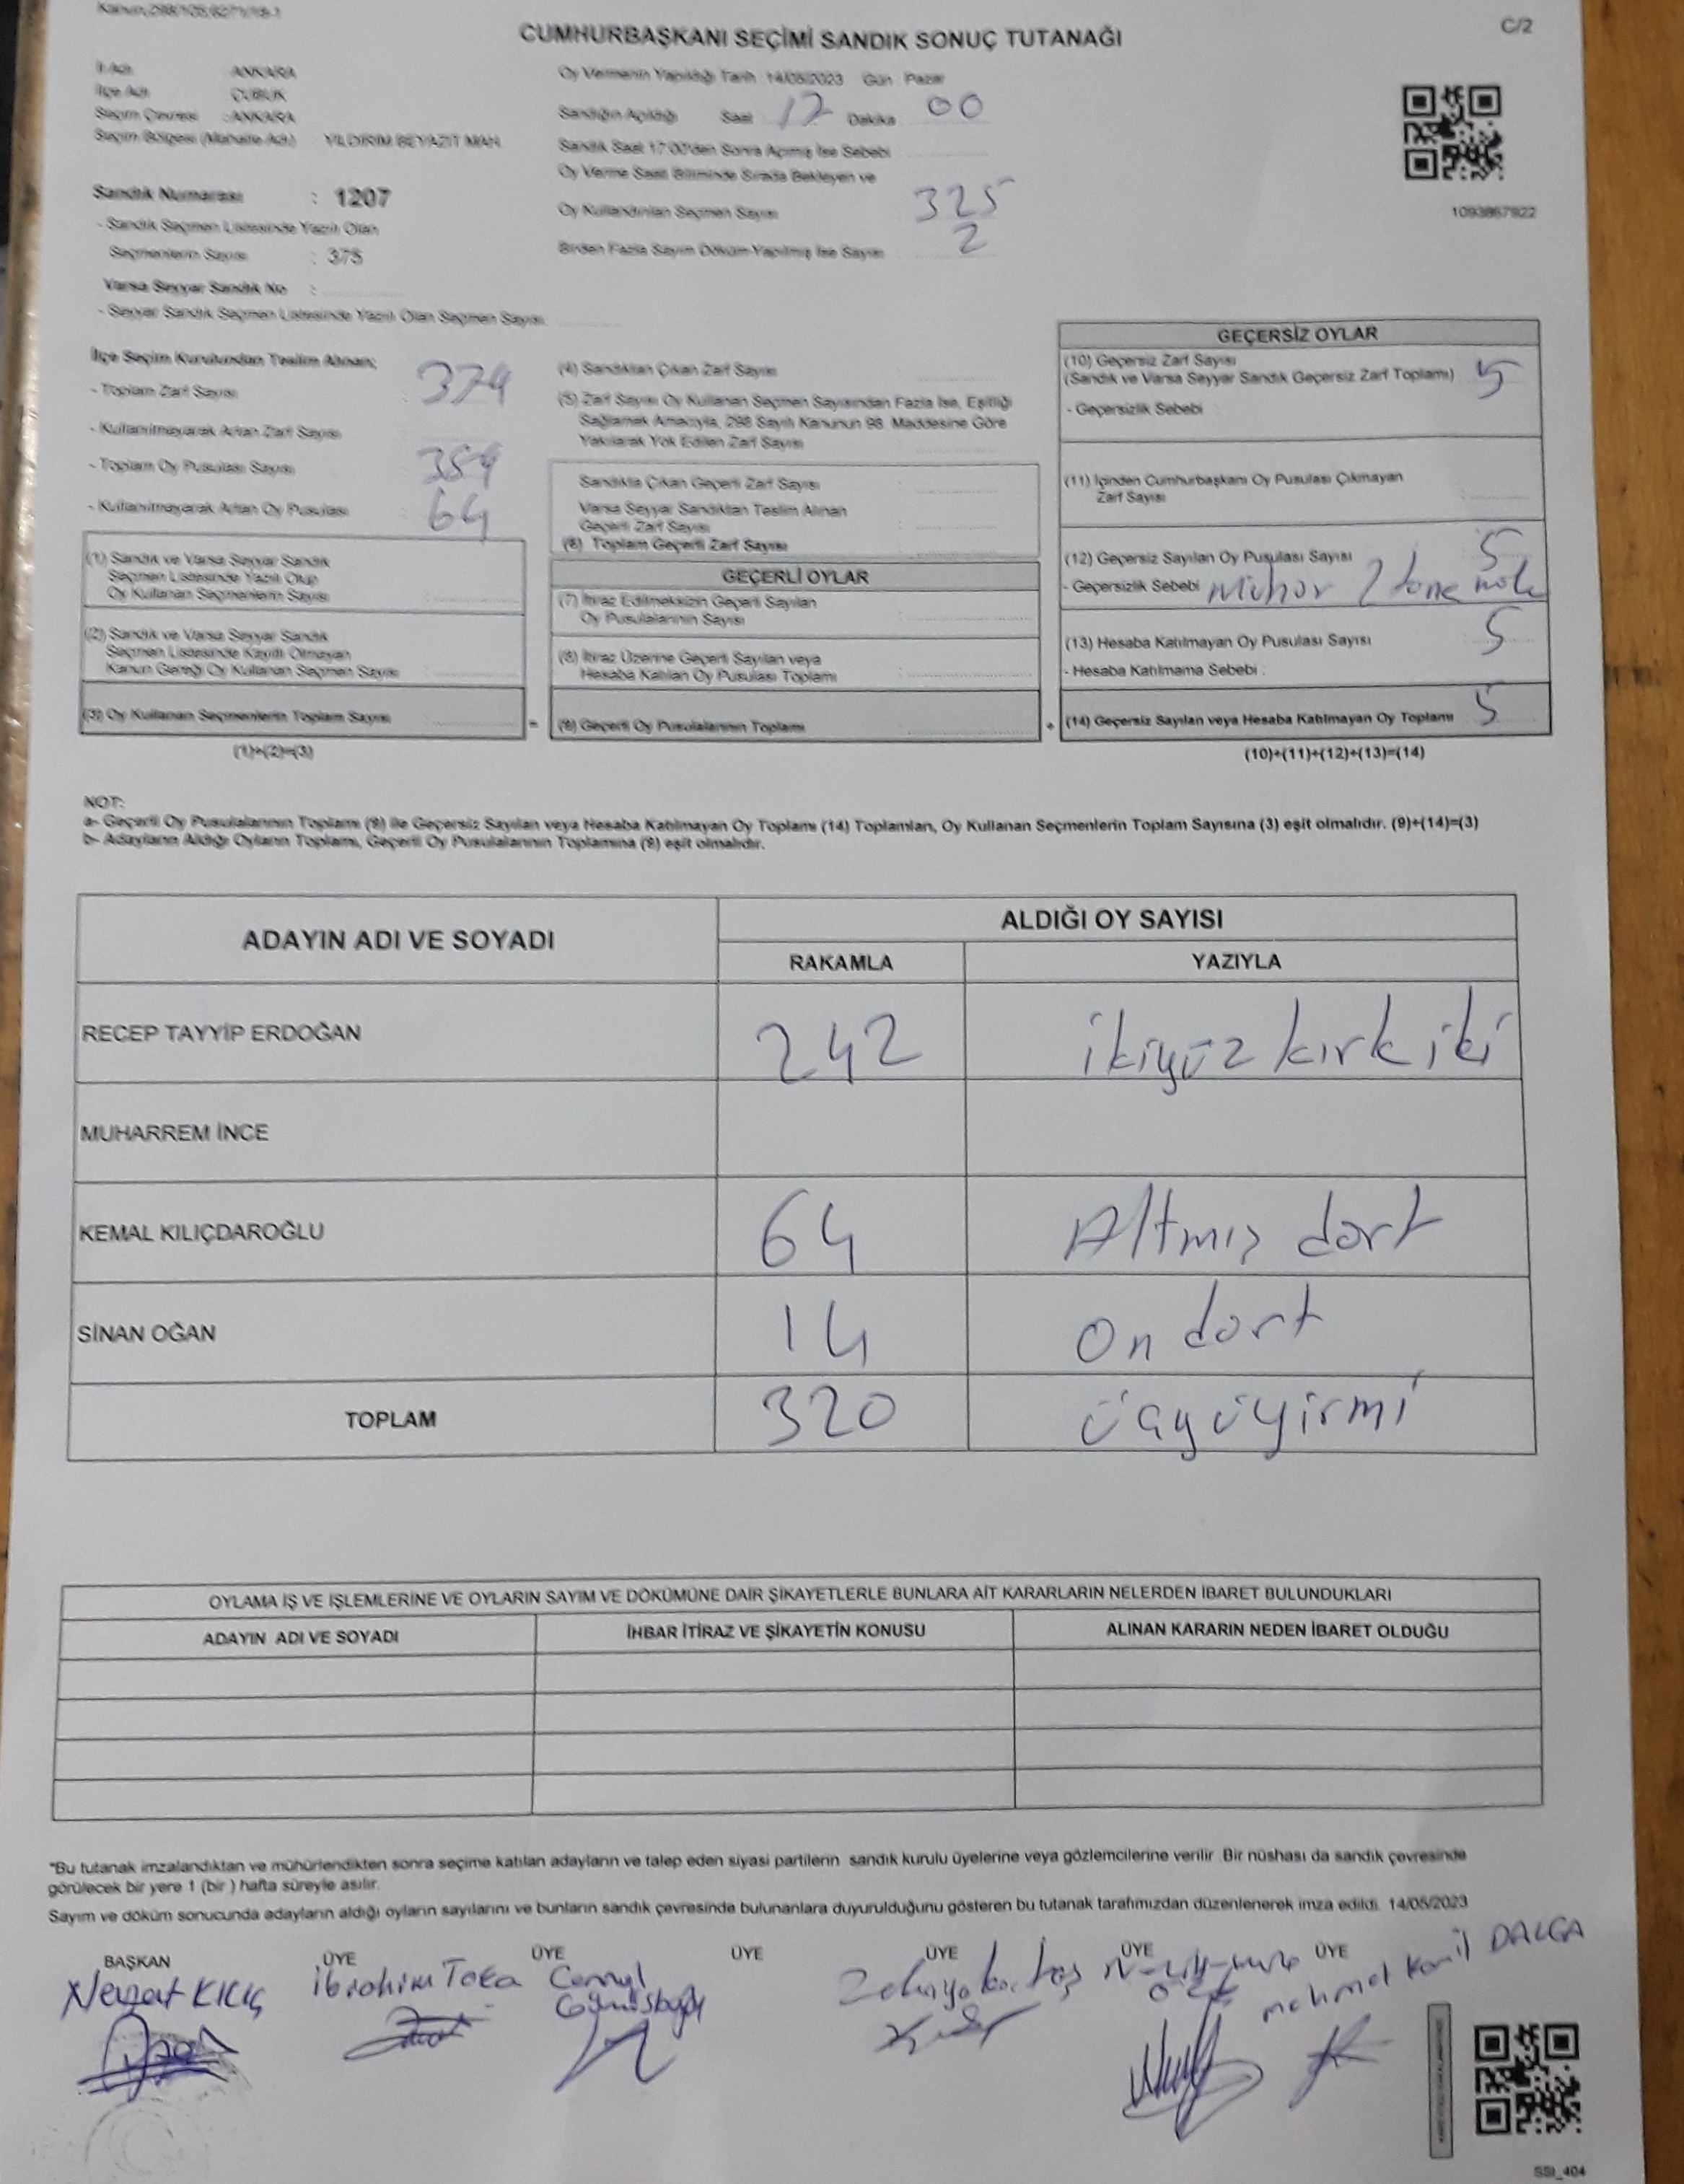 CUMHURBAŞKANI SEÇİMİ SANDIK SONUÇ TUTANAĞI
C/2
İl Adı : ANKARA
İlçe Adı : ÇUBUK
Seçim Çevresi : ANKARA
Seçim Bölgesi (Mahalle Adı) : YILDIRIM BEYAZIT MAH.
Sandık Numarası : 1207
- Sandık Seçmen Listesinde Yazılı Olan
Seçmenlerin Sayısı : 375
Varsa Seyyar Sandık No :
- Seyyar Sandık Seçmen Listesinde Yazılı Olan Seçmen Sayısı
Oy Vermenin Yapıldığı Tarih : 14/05/2023 Gün : Pazar
Sandığın Açıldığı Saat 17 Dakika 00
Sandık Saat 17:00'den Sonra Açılmış İse Sebebi
Oy Verme Saati Bitiminde Sırada Bekleyen ve
Oy Kullandırılan Seçmen Sayısı 325
Birden Fazla Sayım Döküm Yapılmış İse Sayısı 2
1093867922
İlçe Seçim Kurulundan Teslim Alınan;
- Toplam Zarf Sayısı : 379
- Kullanılmayarak Artan Zarf Sayısı
- Toplam Oy Pusulası Sayısı
- Kullanılmayarak Artan Oy Pusulası 64
(1) Sandık ve Varsa Seyyar Sandık
Seçmen Listesinde Yazılı Olup
Oy Kullanan Seçmenlerin Sayısı
(2) Sandık ve Varsa Seyyar Sandık
Seçmen Listesinde Kayıtlı Olmayan
Kanun Gereği Oy Kullanan Seçmen Sayısı
(3) Oy Kullanan Seçmenlerin Toplam Sayısı
(1)+(2)=(3)
(4) Sandıktan Çıkan Zarf Sayısı
(5) Zarf Sayısı Oy Kullanan Seçmen Sayısından Fazla İse, Eşitliği
Sağlamak Amacıyla, 298 Sayılı Kanunun 98. Maddesine Göre
Yakılarak Yok Edilen Zarf Sayısı
Sandıkta Çıkan Geçerli Zarf Sayısı
Varsa Seyyar Sandıktan Teslim Alınan
Geçerli Zarf Sayısı
(6) Toplam Geçerli Zarf Sayısı
GEÇERLİ OYLAR
(7) İtiraz Edilmeksizin Geçerli Sayılan
Oy Pusulalarının Sayısı
(8) İtiraz Üzerine Geçerli Sayılan veya
Hesaba Katılan Oy Pusulası Toplamı
(9) Geçerli Oy Pusulalarının Toplamı
GEÇERSİZ OYLAR
(10) Geçersiz Zarf Sayısı 5
(Sandık ve Varsa Seyyar Sandık Geçersiz Zarf Toplamı)
- Geçersizlik Sebebi :
(11) İçinden Cumhurbaşkanı Oy Pusulası Çıkmayan
Zarf Sayısı
(12) Geçersiz Sayılan Oy Pusulası Sayısı 5
- Geçersizlik Sebebi 2 tane
(13) Hesaba Katılmayan Oy Pusulası Sayısı 5
- Hesaba Katılmama Sebebi :
(14) Geçersiz Sayılan veya Hesaba Katılmayan Oy Toplamı 5
(10)+(11)+(12)+(13)=(14)
NOT:
a- Geçerli Oy Pusulalarının Toplamı (9) ile Geçersiz Sayılan veya Hesaba Katılmayan Oy Toplamı (14) Toplamları, Oy Kullanan Seçmenlerin Toplam Sayısına (3) eşit olmalıdır. (9)+(14)=(3)
b- Adayların Aldığı Oyların Toplamı, Geçerli Oy Pusulalarının Toplamına (9) eşit olmalıdır.
ADAYIN ADI VE SOYADI
ALDIĞI OY SAYISI
RAKAMLA YAZIYLA
RECEP TAYYİP ERDOĞAN 242 ikiyüz kırk iki
MUHARREM İNCE
KEMAL KILIÇDAROĞLU 64 Altmış dört
SİNAN OĞAN 14 On dort
TOPLAM 320 üçyüyirmi
OYLAMA İŞ VE İŞLEMLERİNE VE OYLARIN SAYIM VE DÖKÜMÜNE DAİR ŞİKAYETLERLE BUNLARA AİT KARARLARIN NELERDEN İBARET BULUNDUKLARI
ADAYIN ADI VE SOYADI İHBAR İTİRAZ VE ŞİKAYETİN KONUSU ALINAN KARARIN NEDEN İBARET OLDUĞU
*Bu tutanak imzalandıktan ve mühürlendikten sonra seçime katılan adayların ve talep eden siyasi partilerin sandık kurulu üyelerine veya gözlemcilerine verilir. Bir nüshası da sandık çevresinde
görülecek bir yere 1 (bir ) hafta süreyle asılır.
Sayım ve döküm sonucunda adayların aldığı oyların sayılarını ve bunların sandık çevresinde bulunanlara duyurulduğunu gösteren bu tutanak tarafımızdan düzenlenerek imza edildi. 14/05/2023
BAŞKAN ÜYE ÜYE ÜYE ÜYE ÜYE ÜYE
Nevzat KILIÇ İbrahim Toka mehmet Kamil DALGA
SSI_404